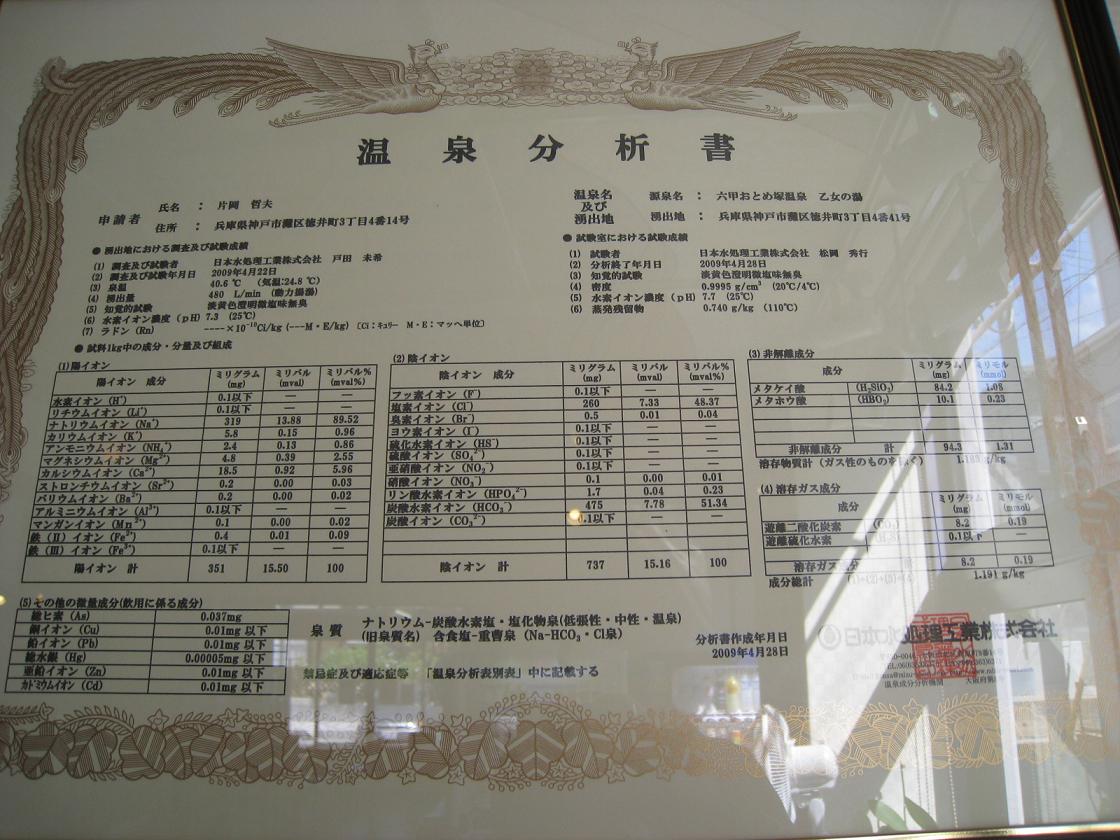 温泉分析書
申請者 氏名 : 片岡 哲夫
住所 : 兵庫県神戸市灘区徳井町3丁目4番14号
温泉名及び湧出地 源泉名 : 六甲おとめ塚温泉 乙女の湯
湧出地 : 兵庫県神戸市灘区徳井町3丁目4番41号
● 湧出地における調査及び試験成績
(1) 調査及び試験者 日本水処理工業株式会社 戸田 未希
(2) 調査及び試験年月日 2009年4月22日
(3) 泉温 40.6 ℃ (気温:24.8 ℃)
(4) 湧出量 480 L/min (動力揚湯)
(5) 知覚的試験 淡黄色澄明微塩味無臭
(6) 水素イオン濃度 (pH) 7.3 (25℃)
(7) ラドン (Rn) ----×10⁻¹⁰Ci/kg (---M・E/kg) 〔Ci:キュリー M・E:マッヘ単位〕
● 試験室における試験成績
(1) 試験者 日本水処理工業株式会社 松岡 秀行
(2) 分析終了年月日 2009年4月28日
(3) 知覚的試験 淡黄色澄明微塩味無臭
(4) 密度 0.9995 g/cm³ (20℃/4℃)
(5) 水素イオン濃度 (pH) 7.7 (25℃)
(6) 蒸発残留物 0.740 g/kg (110℃)
● 試料1kg中の成分・分量及び組成
(1) 陽イオン
陽イオン 成分 ミリグラム(mg) ミリバル(mval) ミリバル%(mval%)
水素イオン (H⁺) 0.1以下 — —
リチウムイオン (Li⁺) 0.1以下 — —
ナトリウムイオン (Na⁺) 319 13.88 89.52
カリウムイオン (K⁺) 5.8 0.15 0.96
アンモニウムイオン (NH₄⁺) 2.4 0.13 0.86
マグネシウムイオン (Mg²⁺) 4.8 0.39 2.55
カルシウムイオン (Ca²⁺) 18.5 0.92 5.96
ストロンチウムイオン (Sr²⁺) 0.2 0.00 0.03
バリウムイオン (Ba²⁺) 0.2 0.00 0.02
アルミニウムイオン (Al³⁺) 0.1以下 — —
マンガンイオン (Mn²⁺) 0.1 0.00 0.02
鉄 (II) イオン (Fe²⁺) 0.4 0.01 0.09
鉄 (III) イオン (Fe³⁺) 0.1以下 — —
陽イオン 計 351 15.50 100
(2) 陰イオン
陰イオン 成分 ミリグラム(mg) ミリバル(mval) ミリバル%(mval%)
フッ素イオン (F⁻) 0.1以下 — —
塩素イオン (Cl⁻) 260 7.33 48.37
臭素イオン (Br⁻) 0.5 0.01 0.04
ヨウ素イオン (I⁻) 0.1以下 — —
硫化水素イオン (HS⁻) 0.1以下 — —
硫酸イオン (SO₄²⁻) 0.1以下 — —
亜硝酸イオン (NO₂⁻) 0.1以下 — —
硝酸イオン (NO₃⁻) 0.1 0.00 0.01
リン酸水素イオン (HPO₄²⁻) 1.7 0.04 0.23
炭酸水素イオン (HCO₃⁻) 475 7.78 51.34
炭酸イオン (CO₃²⁻) 0.1以下 — —
陰イオン 計 737 15.16 100
(3) 非解離成分
成分 ミリグラム(mg) ミリモル(mmol)
メタケイ酸 (H₂SiO₃) 84.2 1.08
メタホウ酸 (HBO₂) 10.1 0.23
非解離成分 計 94.3 1.31
溶存物質計 (ガス性のものを除く) g/kg
(4) 溶存ガス成分
成分 ミリグラム(mg) ミリモル(mmol)
遊離二酸化炭素 (CO₂) 8.2 0.19
遊離硫化水素 (H₂S) 0.1以下 —
溶存ガス成分 計 8.2 0.19
成分総計 (1)+(2)+(3)+(4) 1.191 g/kg
(5) その他の微量成分(飲用に係る成分)
総ヒ素 (As) 0.037mg
銅イオン (Cu) 0.01mg 以下
鉛イオン (Pb) 0.01mg 以下
総水銀 (Hg) 0.00005mg 以下
亜鉛イオン (Zn) 0.01mg 以下
カドミウムイオン (Cd) 0.01mg 以下
泉質 ナトリウム-炭酸水素塩・塩化物泉(低張性・中性・温泉)
(旧泉質名) 含食塩-重曹泉 (Na-HCO₃・Cl泉)
禁忌症及び適応症等 「温泉分析表別表」中に記載する
分析書作成年月日
2009年4月28日
日本水処理工業株式会社
温泉成分分析機関